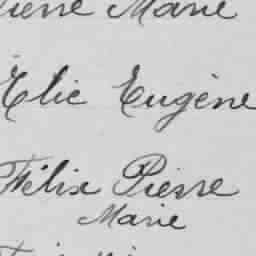 Pierre Marie
Élie Eugène
Félix Pierre
Marie